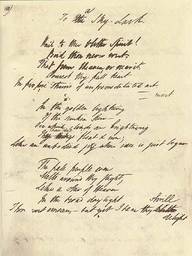 To the Sky-Lark
Hail to thee blithe Spirit!
Bird thou never wert,
That from Heaven, or near it
Pourest thy full heart
In profuse strains of unpremeditated art
In the golden lightning
Of the sunken Sun
are brightening
Thou float & run,
Like an unbodied joy whose race is just begun
The pale purple even
Melts around thy flight,
Like a star of Heaven
In the broad daylight
Thou art unseen — but yet I hear thy
delight